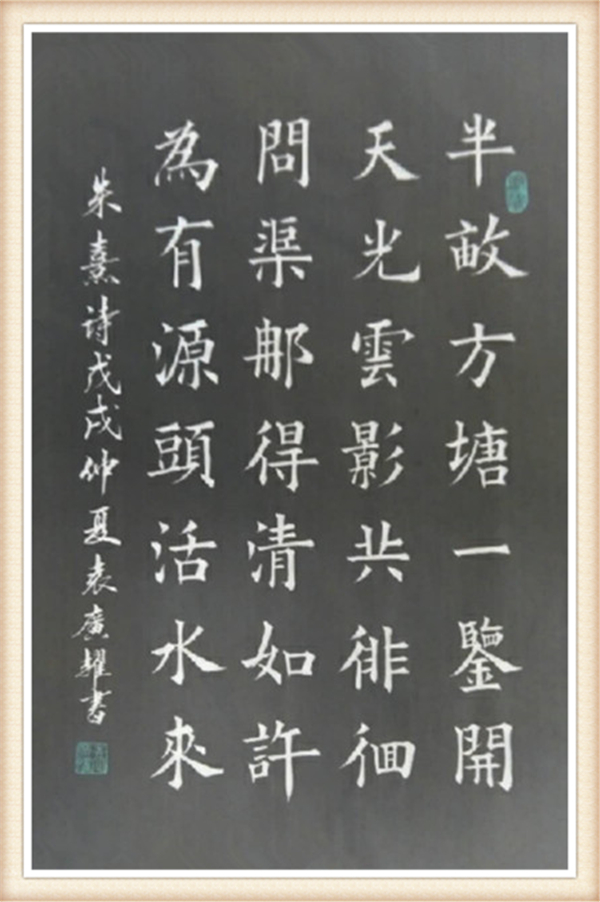 半畝方塘一鑒開
天光雲影共徘徊
問渠那得清如許
為有源頭活水來
朱熹诗戊戌仲夏袁廣耀書